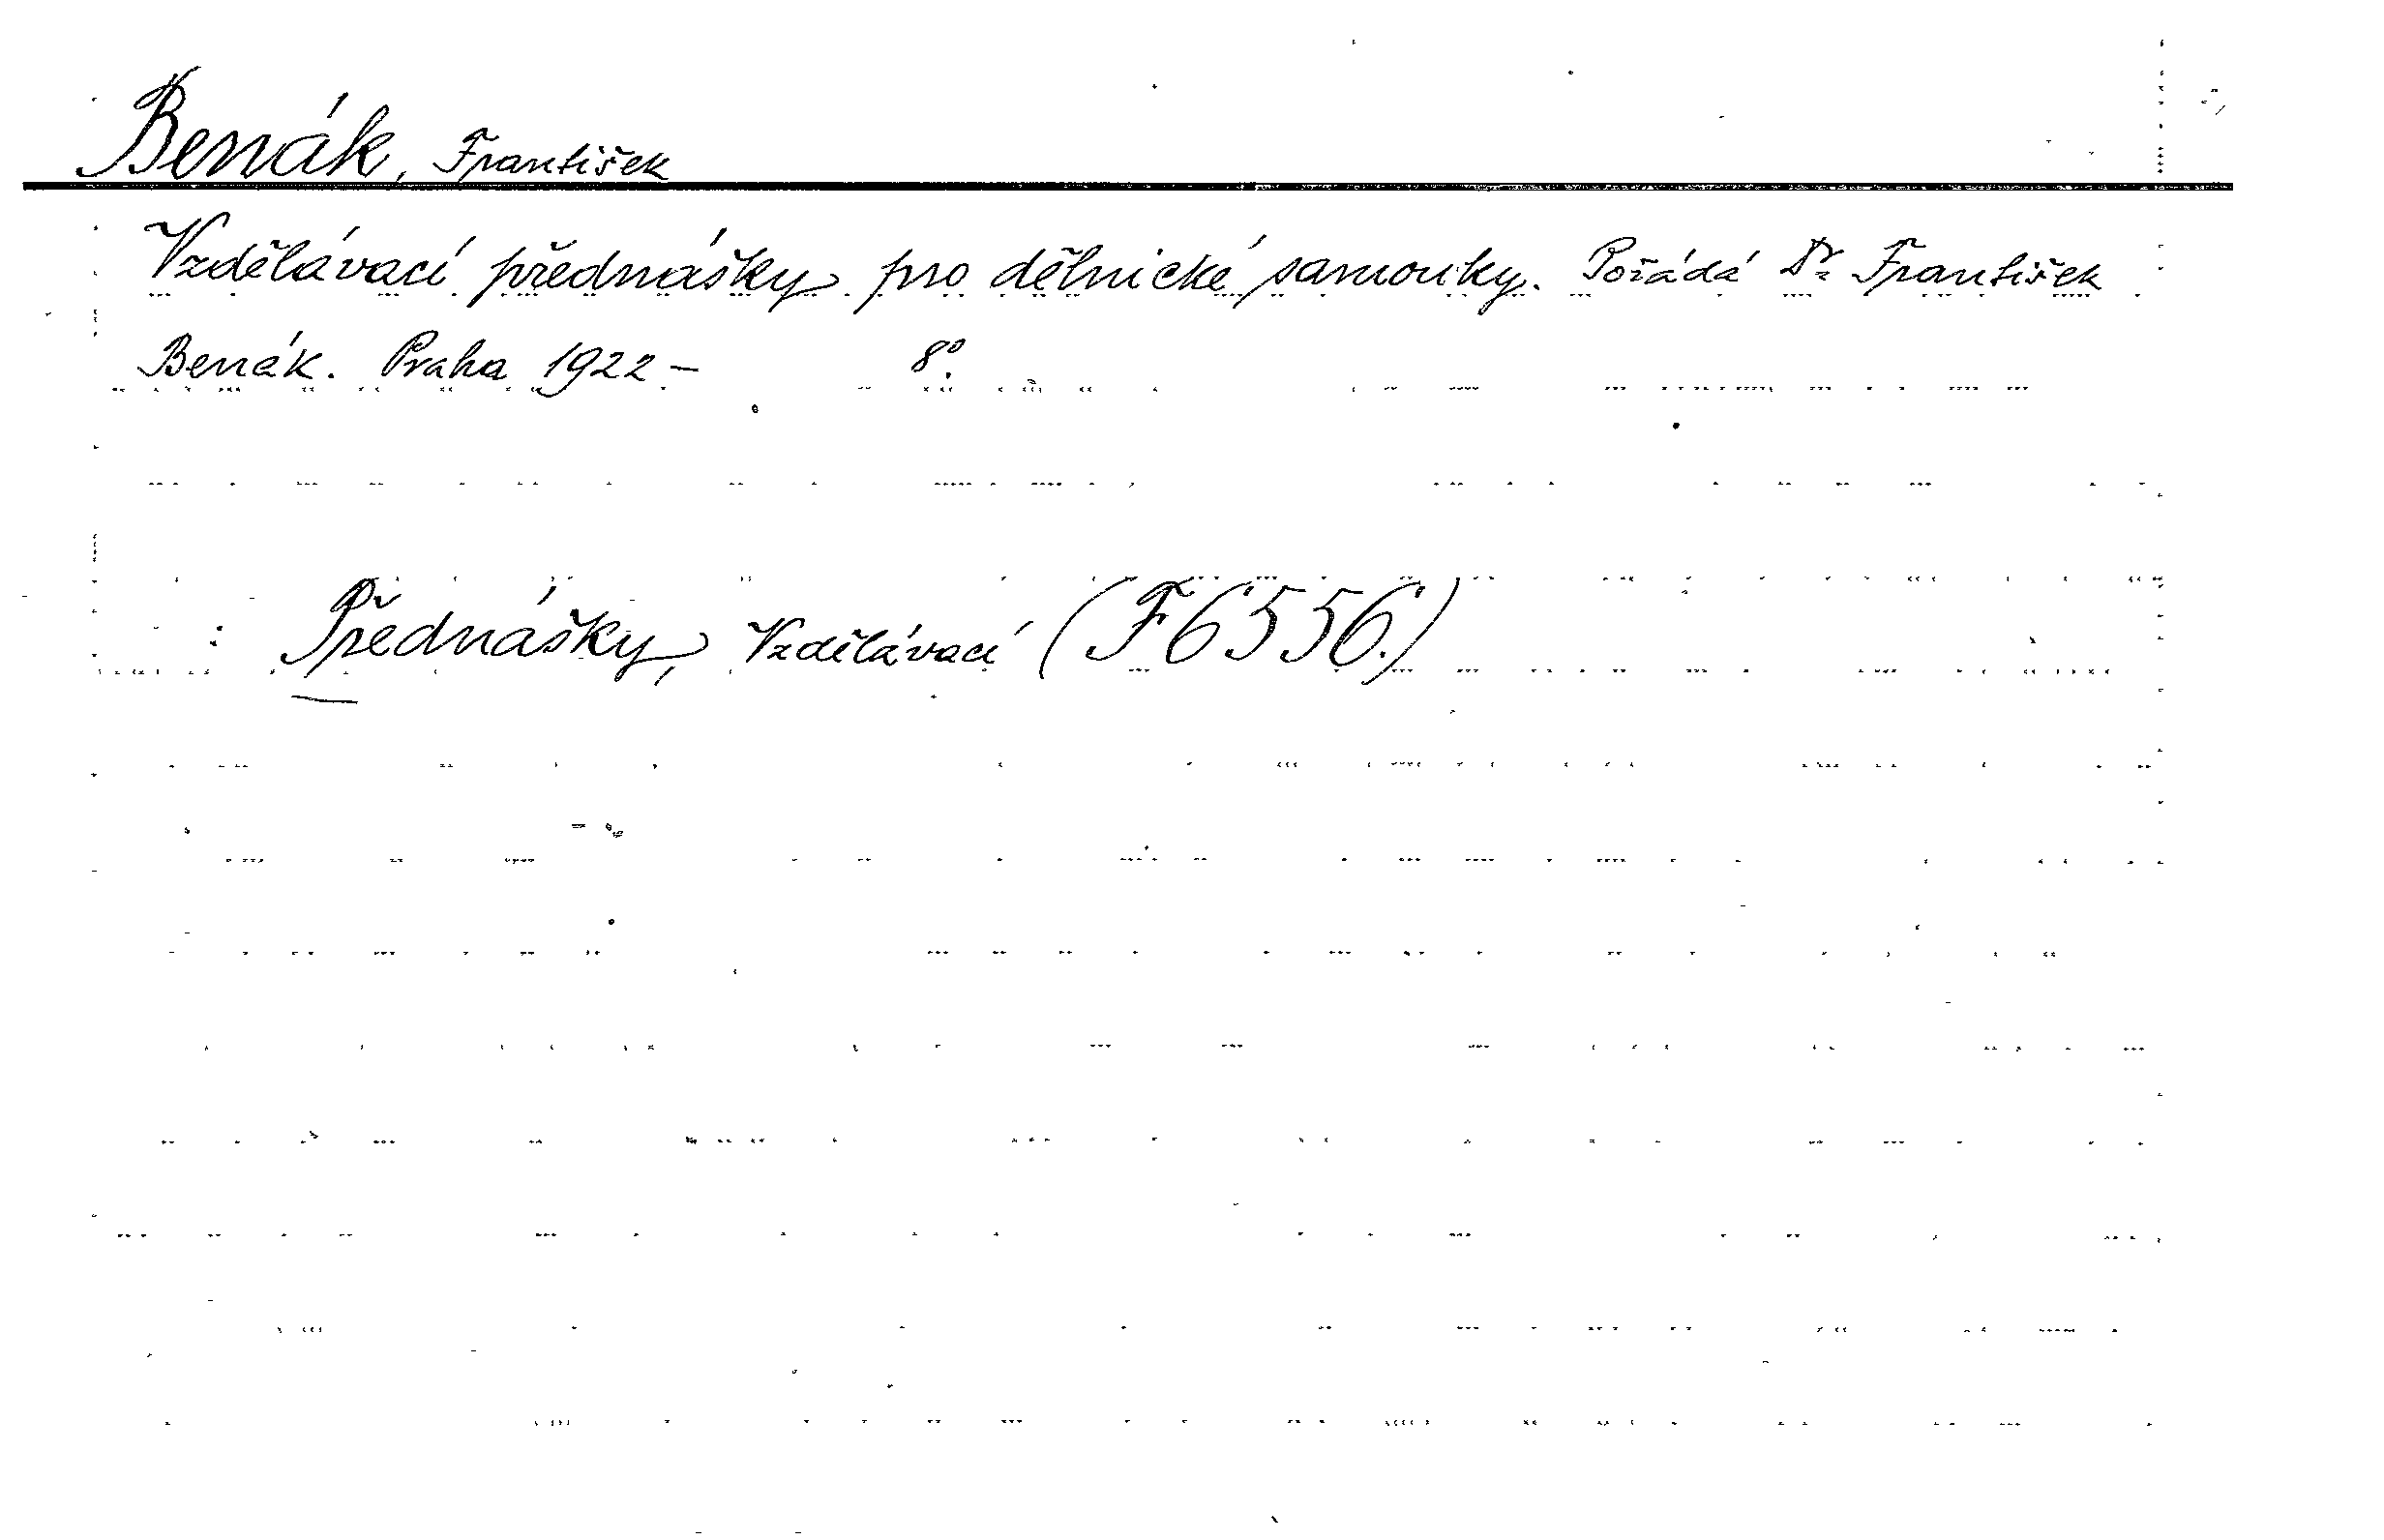 Benák, František
Vzdělávací přednášky pro dělnické samouky. Pořádá Dr. František
Benák. Praha 1922 – 8º.
Přednášky, Vzdělávací (F 6556.)